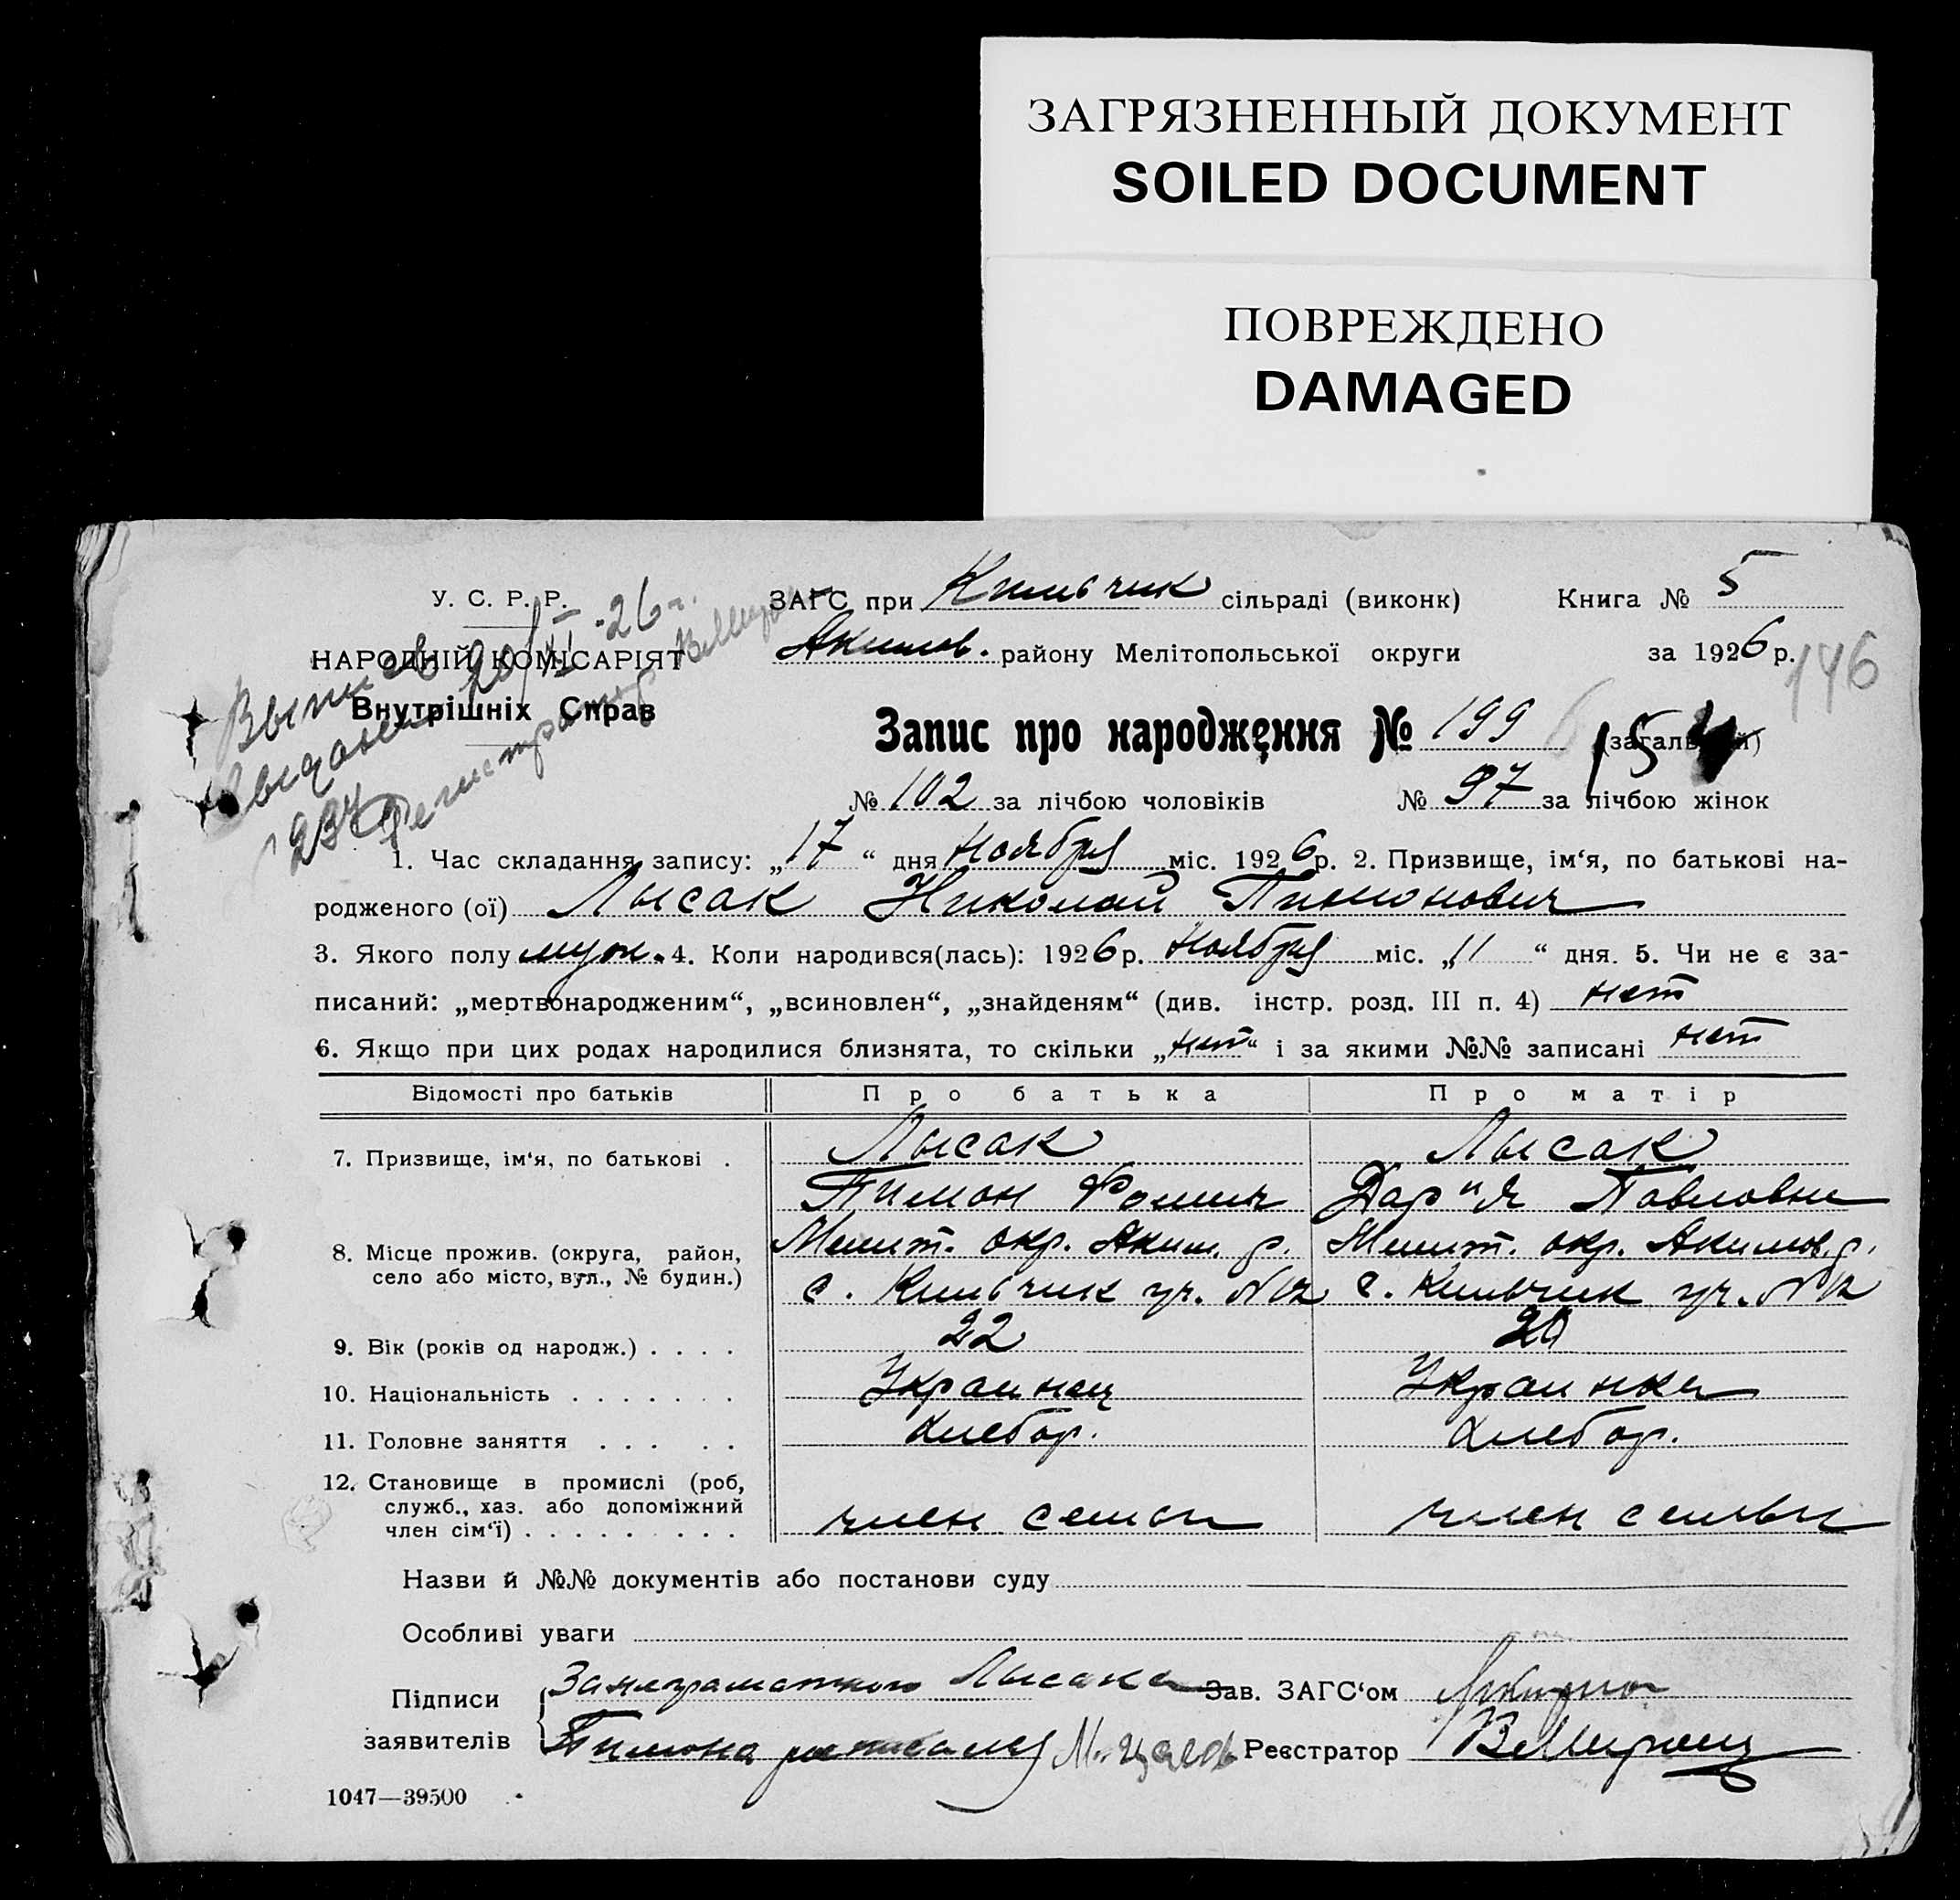 ЗАГРЯЗНЕННЫЙ ДОКУМЕНТ
SOILED DOCUMENT
ПОВРЕЖДЕНО
DAMAGED
У. С. Р. Р. ЗАГС при Кильчик сільраді (виконк) Книга № 5
НАРОДНІЙ КОМІСАРІЯТ Акимов. району Мелітопольської округи за 1926 р. 146
Внутрішніх Справ
Запис про народження № 199 (загальний) 154
№ 102 за лічбою чоловіків № 97 за лічбою жінок
1. Час складання запису: „17“ дня Ноября міс. 1926 р. 2. Призвище, ім‘я, по батькові на-
родженого (ої) Лысак Николай Тимонович
3. Якого полу муж. 4. Коли народився(лась): 1926 р. Ноября міс. „11“ дня. 5. Чи не є за-
писаний: „мертвонародженим“, „всиновлен“, „знайденям“ (див. інстр. розд. III п. 4) нет
6. Якщо при цих родах народилися близнята, то скільки „нет“ і за якими №№ записані нет
Відомості про батьків Про батька Про матір
7. Призвище, ім‘я, по батькові . Лысак Лысак
Тимон Фомич Дария Павловна
8. Місце прожив. (округа, район, Мелит. окр. Аким. р. Мелит. окр. Акимов. р.
село або місто, вул., № будин.) с. Кильчик уч. №12 с. Кильчик уч. №12
9. Вік (років од народж.) . . . . 22 20
10. Національність . . . . . . . Украинец Украинка
11. Головне заняття . . . . . Хлебор. Хлебор.
12. Становище в промислі (роб,
служб., хаз. або допоміжний
член сім‘ї) . . . . . . . . . член семьи член семьи
Назви й №№ документів або постанови суду
Особливі уваги
Підписи За неграматного Лысака Зав. ЗАГС‘ом
заявителів Тимона росписался Реєстратор
1047—39500
Выпись
20/XI-26 г.
выдана
234
Регистратор